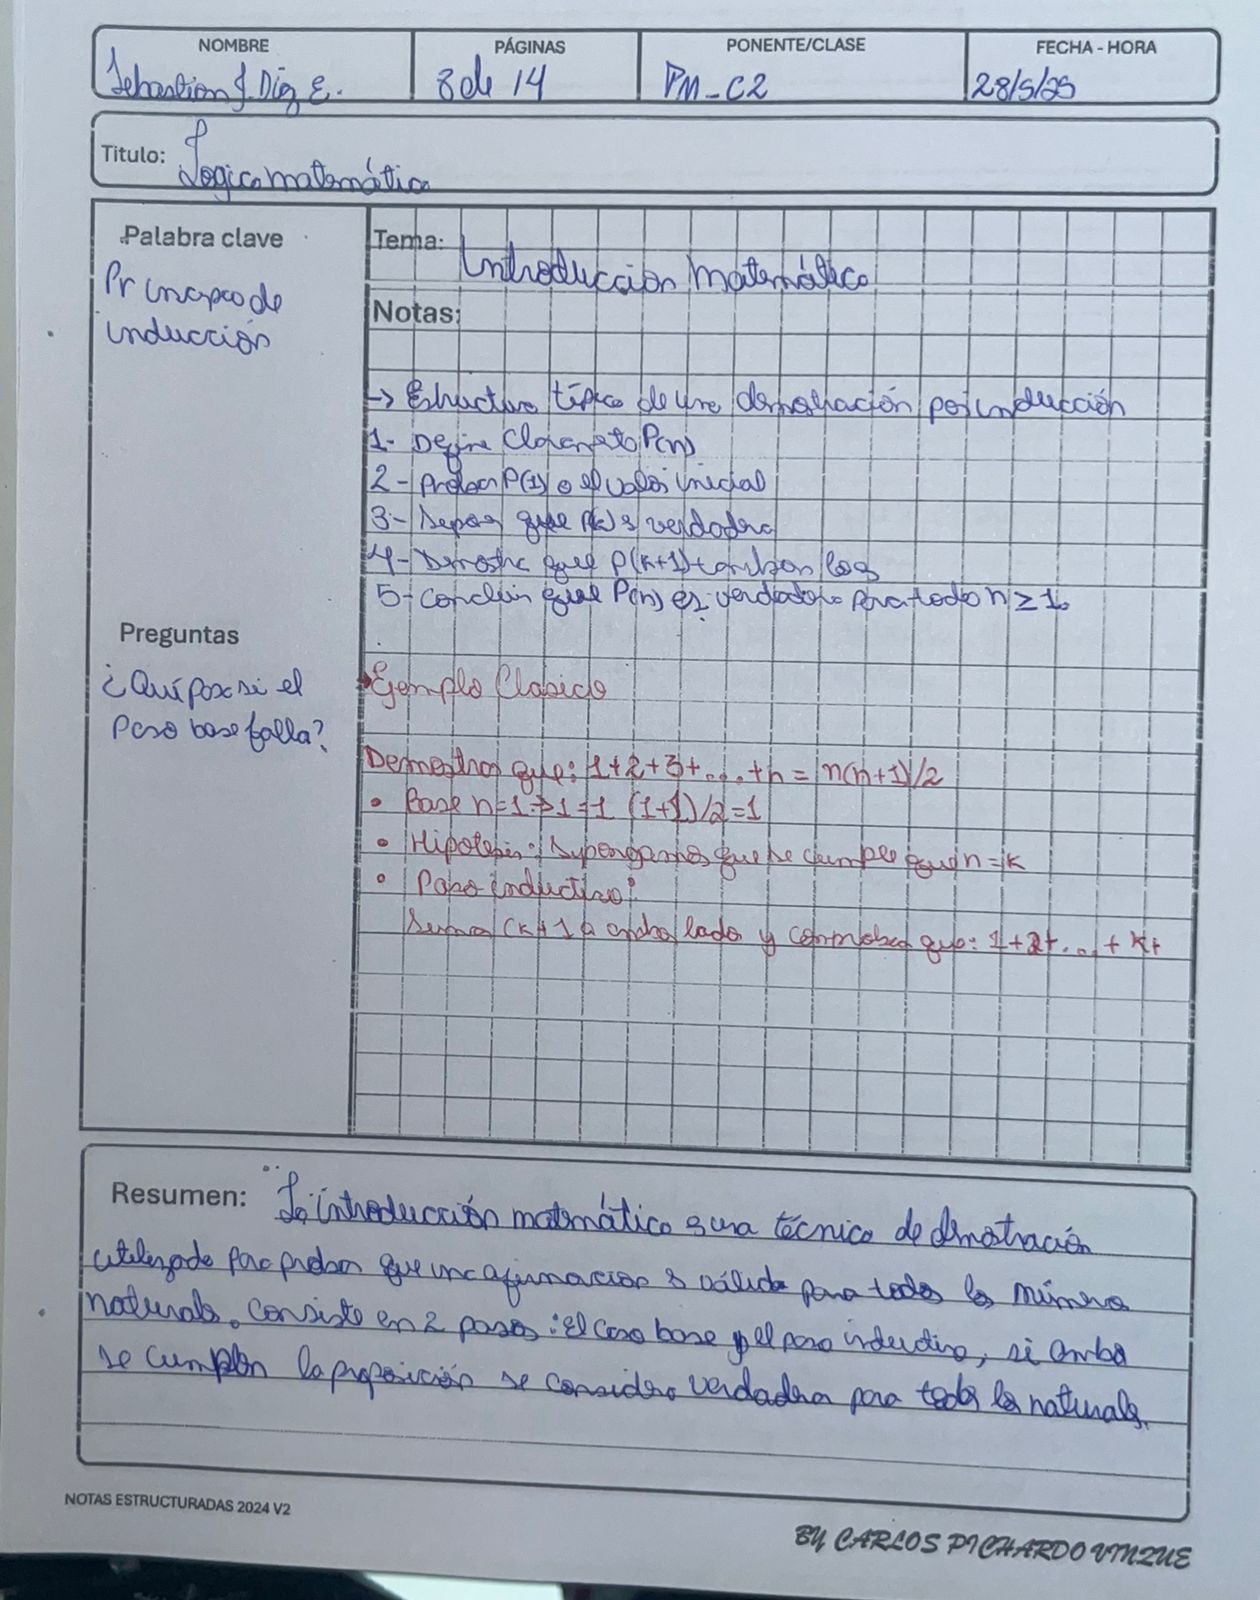 NOMBRE
PÁGINAS
PONENTE/CLASE
FECHA - HORA
Sebastian J. Diaz E.
8 de 14
PM_C2
28/5/25
Titulo: Logica matemática
Palabra clave
Principio de
inducción
Tema: Introducción matemática
Notas:
-> Estructura típica de una demostración por inducción
1- Define P(n)
2- Probar P(1) o el valor inicial
3- que P(k) es verdadera
4- Demostra que P(k+1) tambien
5- Concluir que P(n) es verdadero para todo n ≥ 1.
Preguntas
¿Qué pasa si el
Paso base falla?
Ejemplo Clasico
Demostrar que: 1+2+3+...+n = n(n+1)/2
• Base n=1 → 1=1 (1+1)/2=1
• Hipotesis: Supongamos que se cumple n=k
• Paso inductivo:
Suma (k+1 a ambos lado y que: 1+2+...+k+
Resumen: La introducción matemática es una técnica de demostración
utilizada para probar que una afirmacion es válida para todos los números
naturales. Consiste en 2 pasos: el caso base y el paso inductivo, si ambos
se cumplen la proposición se considera verdadera para todos los naturales.
NOTAS ESTRUCTURADAS 2024 V2
BY CARLOS PICHARDO VINZUE